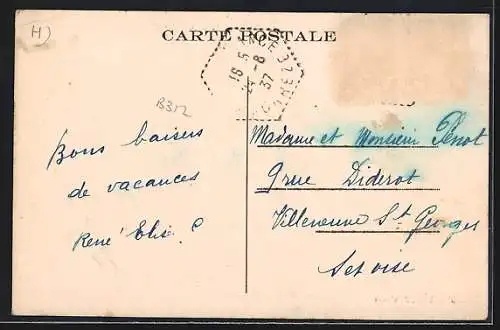 H)
CARTE POSTALE
18 5
24 -8
37
B312
Bons baisers
de vacances
René Elise C
Madame et Monsieur
9 rue Diderot
Villeneuve St Georges
Set oise